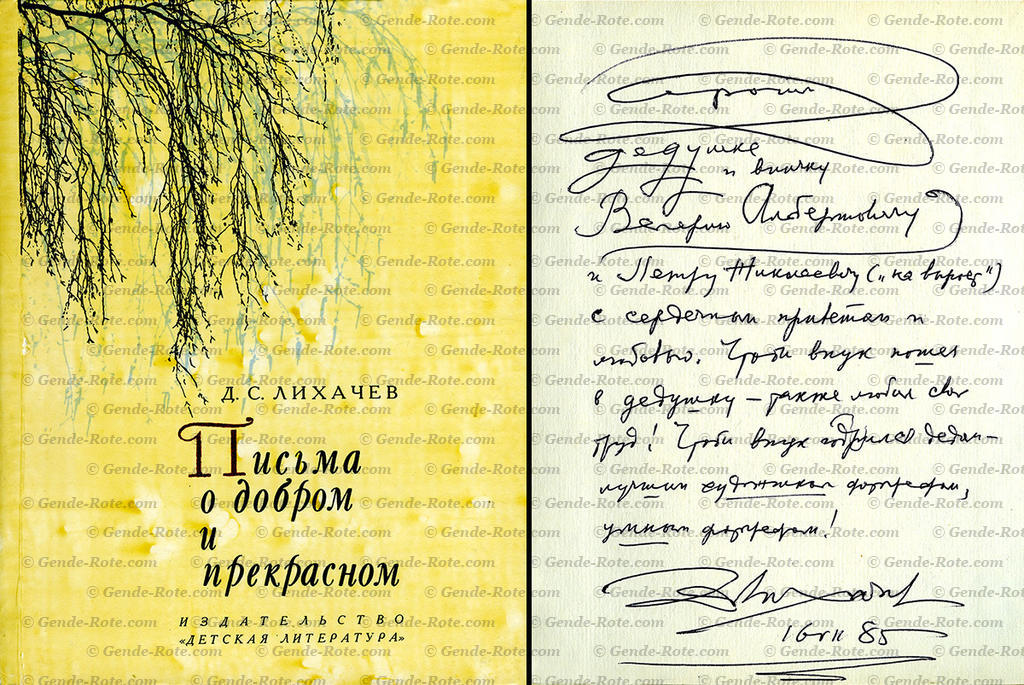 Д. С. ЛИХАЧЕВ
Письма
о добром
и
прекрасном
ИЗДАТЕЛЬСТВО
«ДЕТСКАЯ ЛИТЕРАТУРА»
дедушке
и внуку
Валерию Альбертовичу
и Петру Николаевичу („на вырост“)
с сердечным приветом и
любовью. Чтобы внук пошел
в дедушку – также любил свой
труд! Чтобы внук гордился дедом –
лучшим художником фотографом,
умным фотографом!
Д. Лихачев
16 VII 85
© Gende-Rote.com